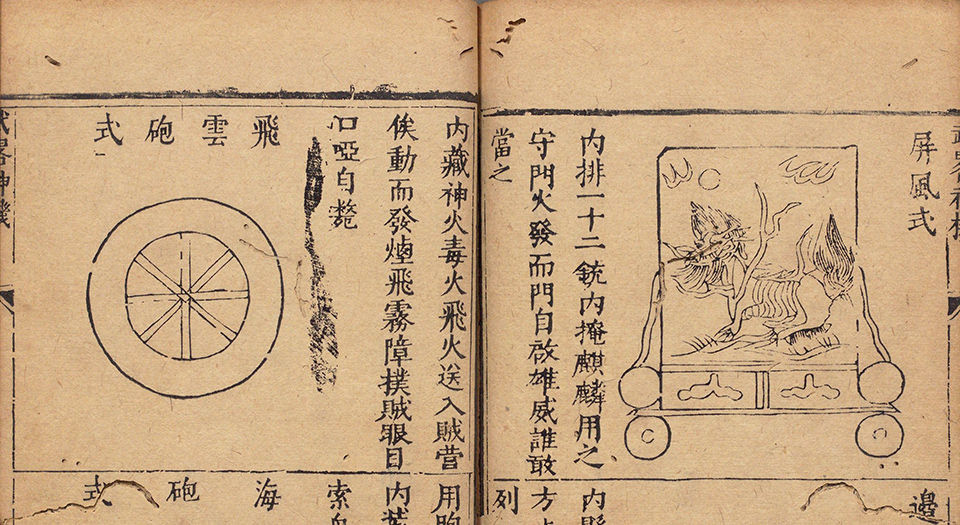 屏風式
内排一十二銃内掩麒麟用之
守門火發而門自啟雄威誰敢
當之
邊
内
方
列
内藏神火毒火飛火送入賊營
俟動而發煙飛霧障撲賊眼目
口啞自斃
飛雲砲式
用
内
索
海砲式
神機